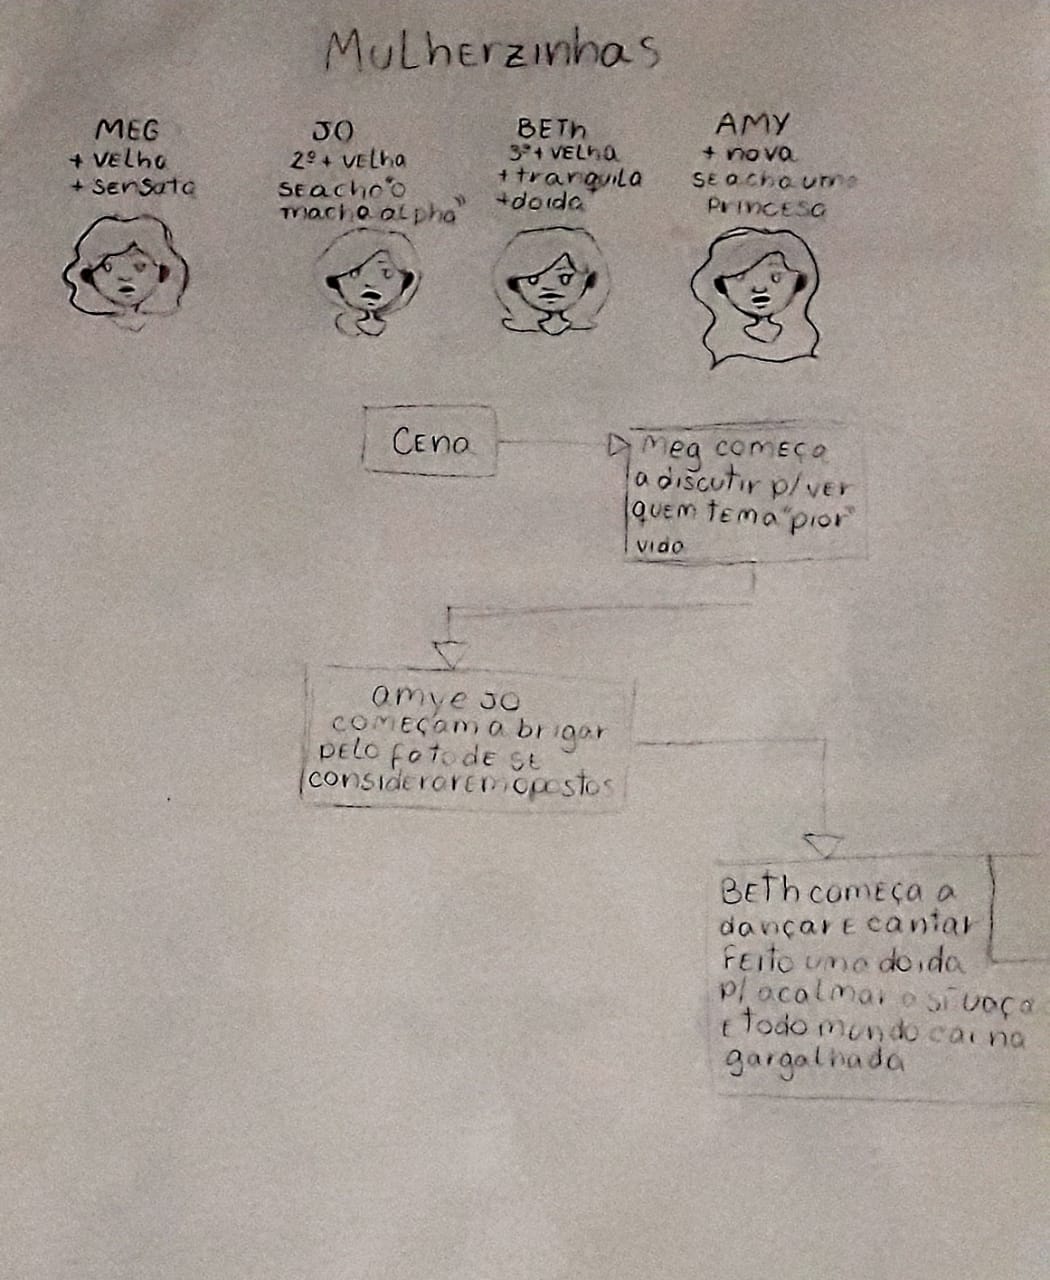 Mulherzinhas
MEG
+ velha
+ sensata
JO
2º + velha
se acha "o
macha alpha"
BETh
3ª + velha
+ tranquila
+ doida
AMY
+ nova
se acha uma
princesa
Cena
Meg começa
a discutir p/ ver
quem tem a "pior"
vida
amy e JO
começam a brigar
pelo fato de se
considerarem opostos
BETh começa a
dançar e cantar
feito uma doida
p/ acalmar a
e todo mundo cai na
gargalhada